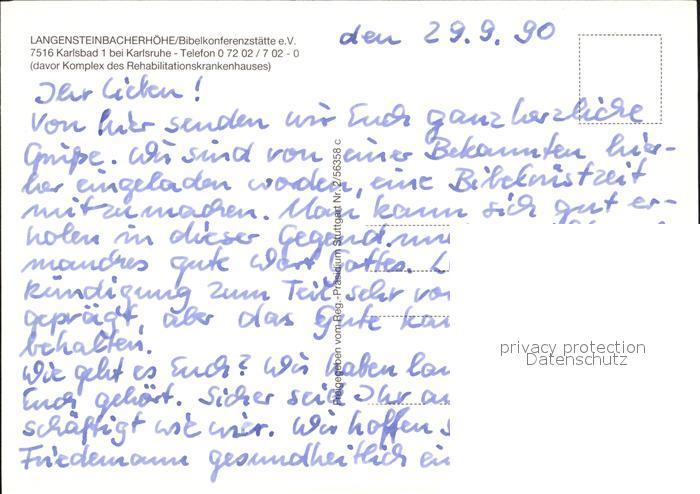 LANGENSTEINBACHERHÖHE/Bibelkonferenzstätte e.V.
7516 Karlsbad 1 bei Karlsruhe - Telefon 0 72 02 / 7 02 - 0
(davor Komplex des Rehabilitationskrankenhauses)
den 29.9.90
Ihr Lieben!
Von hier senden wir Euch ganz herzliche
Grüße. Wir sind von einer Bekannten hier-
her eingeladen worden, eine Bibelrüstzeit
mitzumachen. Man kann sich gut er-
holen in dieser Gegend. und
manches gute Wort Gottes.
kündigung zum Teil sehr
geprägt, aber das Gute
behalten.
Wie geht es Euch? Wir haben
Euch gehört. Sicher seid Ihr
schäftigt wie wir. Wir hoffen
Friedemann gesundheitlich
Freigegeben vom Reg.-Präsidium Stuttgart Nr. 2/56358 c
privacy protection
Datenschutz